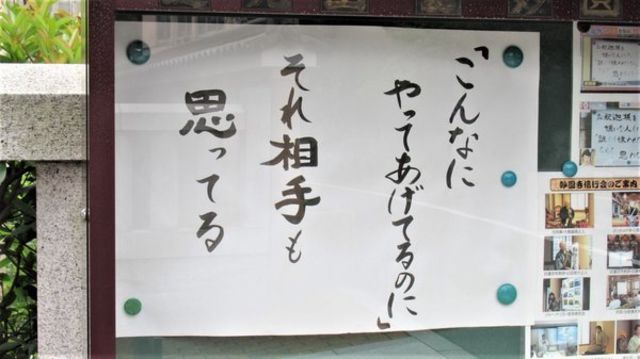 「こんなに
やってあげてるのに」
それ相手も
思ってる
静圓寺信行会のご案内